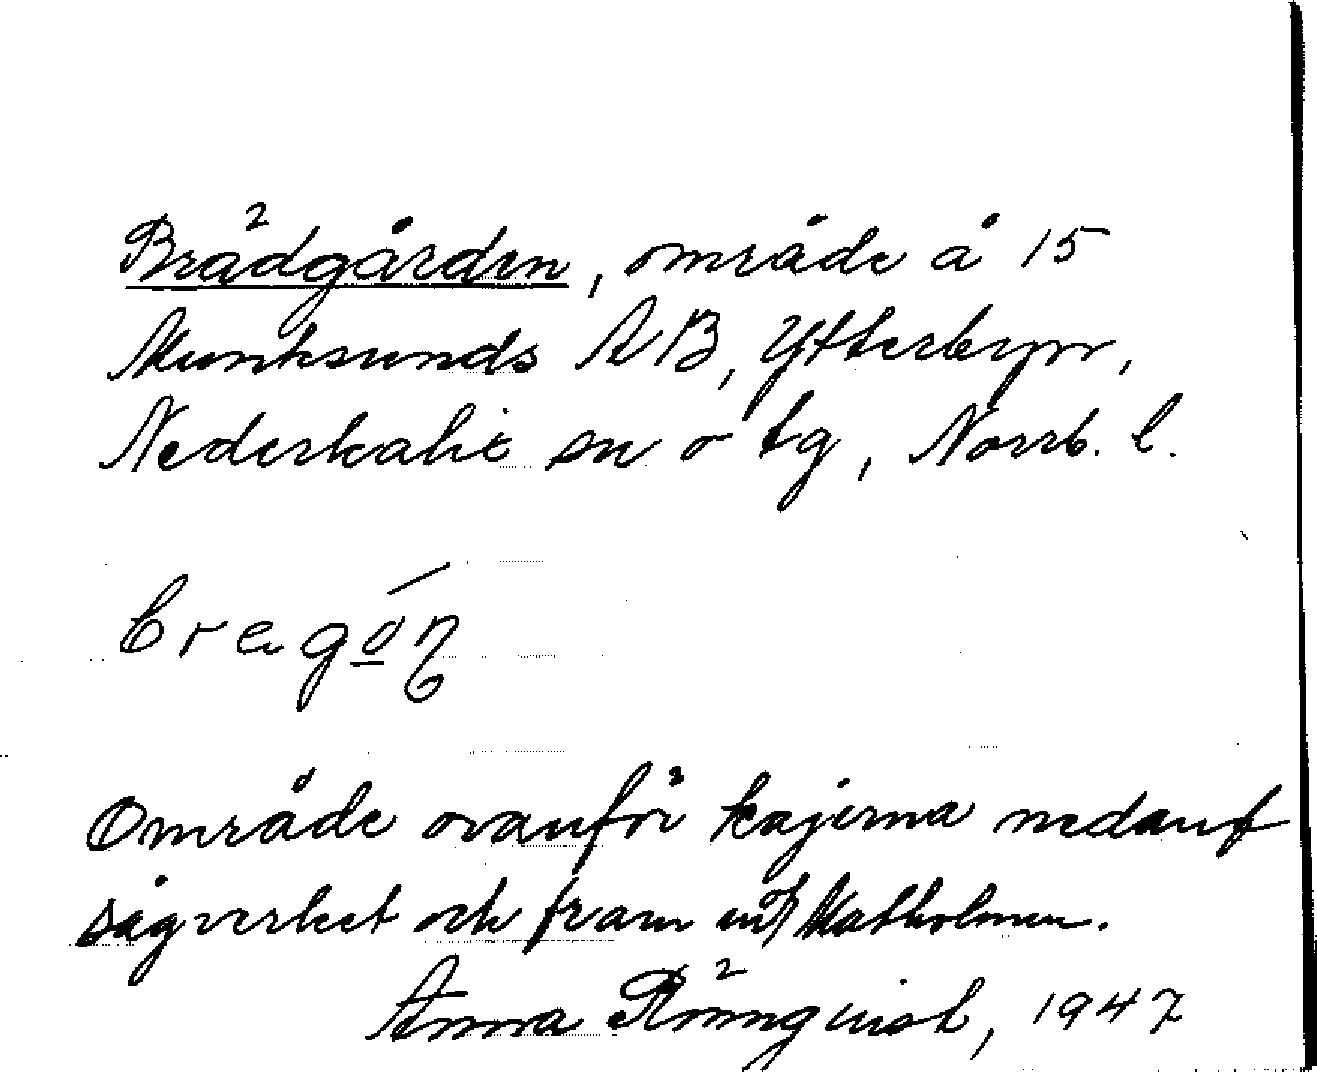 Brädgården, område å 15
Munksunds AB, Ytterbyn,
Nederkalix sn o tg, Norrb. l.
Område ovanför kajerna nedanf
sågverket och fram mot Katholmen.
Anna Rönnqvist, 1947